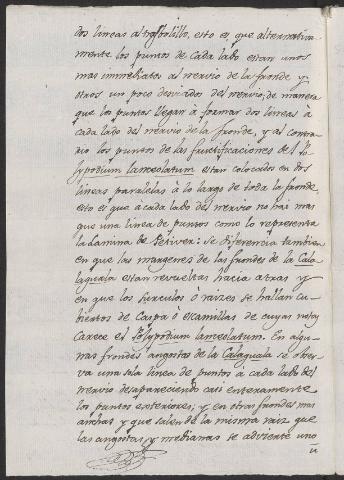 dos lineas al tresbolillo, esto es, que alternativa
mente los puntos de cada lado estan unos
mas immediatos al nervio de la fronde y
otros un poco desviados del nervio; de manera
que los puntos llegan à formar dos lineas à
cada lado del nervio de la fronde, y al contra
rio los puntos de las fructificaciones del Po
lypodium lanceolatum estan colocados en dos
lineas paralelas à lo largo de toda la fronde
esto es que à cada lado del nervio no hai mas
que una linea de puntos como lo representa
la Lamina de Petiver: Se diferencia tambien
en que las margenes de las frondes de la Cala
laguala estan revueltas hacia atras y
en que los surculos ò raizes se hallan cu
biertos de Caspa ò escamillas de cuya nota
Carece el Polypodium lanceolatum. En algu
nas frondes angostas de la Calaguala se obser
va una sola linea de puntos à cada lado del
nervio desapareciendo casi enteramente
los puntos exteriores; y en otras frondes mas
anchas y que salen de la misma raiz que
las angostas y medianas se advierte uno